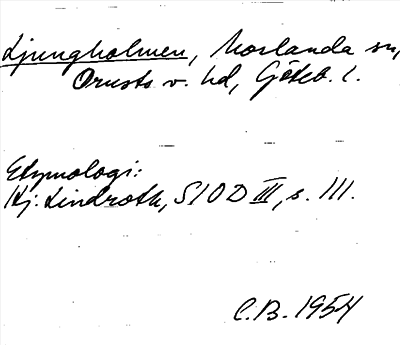 Ljungholmen, Morlanda sn,
Orusts v. hd, Göteb. l.
Etymologi:
Hj. Lindroth, SIOD III, s. 111.
C.B. 1954